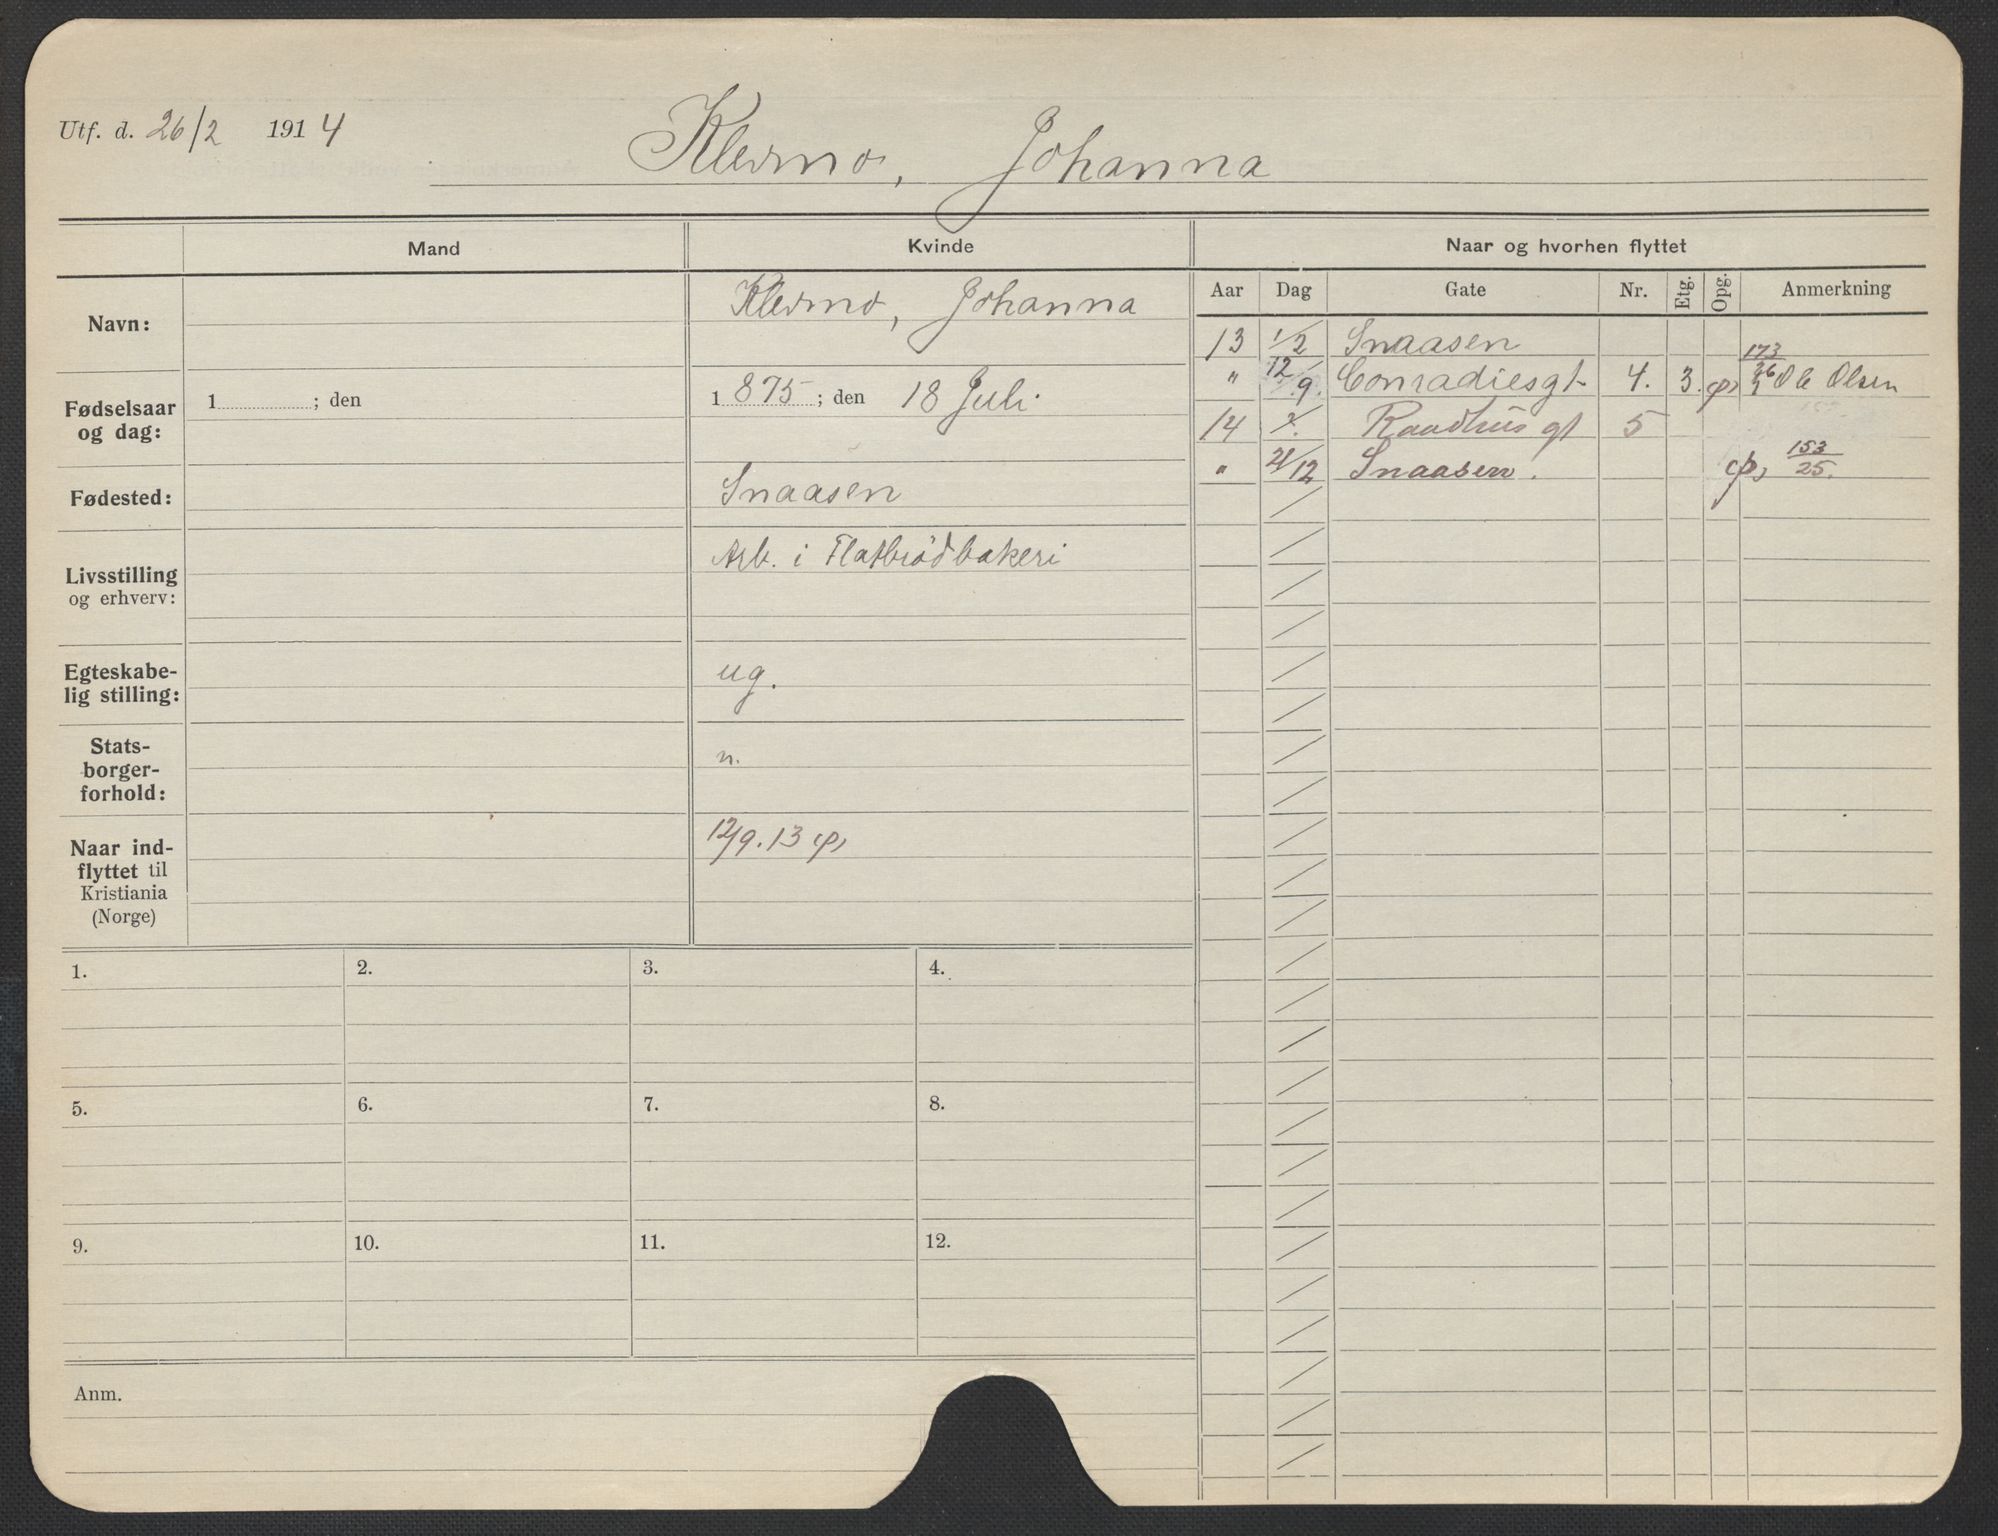 Utf. d. 26/2 1914
Klevmo, Johanna
Mand
Kvinde
Naar og hvorhen flyttet
Aar Dag Gate Nr. Etg. Opg. Anmerkning
Navn:
Klevmo, Johanna
Fødselsaar
og dag:
1 ; den
1 875 ; den 18 Juli.
Fødested:
Snaasen
Livsstilling
og erhverv:
Arb. i Flatbrødbakeri
Egteskabe-
lig stilling:
ug.
Stats-
borger-
forhold:
n.
Naar ind-
flyttet til
Kristiania
(Norge)
12/9. 13
13 1/2 Snaasen
" 12/9. Conradiesgt 4. 3. 173 Ole Olsen
14 Raadhusgt 5
" 21/12 Snaasen. 153/25.
1. 2. 3. 4.
5. 6. 7. 8.
9. 10. 11. 12.
Anm.